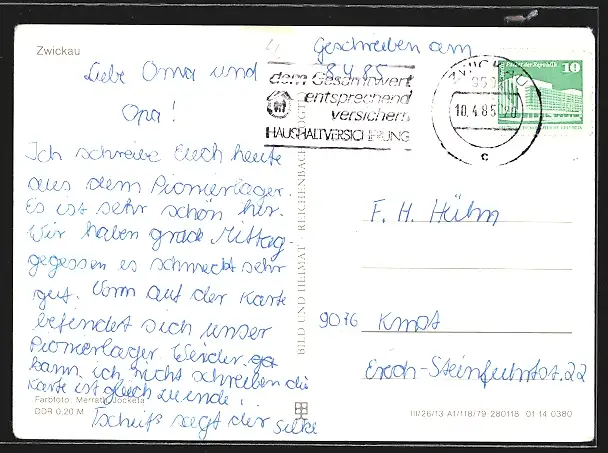 Zwickau
Geschrieben am
8.4.85
Liebe Oma und
Opa!
Ich schreibe Euch heute
aus dem Pionierlager.
Es ist sehr schön hir.
Wir haben grad Mittag-
gegessen es schmeckt sehr
gut. Vorn auf der Karte
befindet sich unser
Pionierlager. Weider
kann ich nicht schreiben die
Karte ist gleich zu ende!
Tschüß sagt der Silke
Farbfoto: Merratti, Jocketa
DDR 0,20 M
BILD UND HEIMAT · REICHENBACH
dem Gesamtwert
entsprechend
versichern
HAUSHALTVERSICHERUNG
ZWICKAU
10.4.85
c
Palast der Republik
10
F. H. Hühn
9076 Kmst
Erich-Steinfurthstr. 22
III/26/13 A1/118/79 280118 01 14 0380